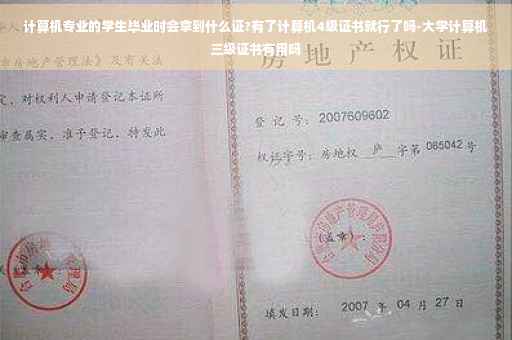 计算机专业的学生毕业时会拿到什么证?有了计算机4级证书就行了吗-大学计算机
三级证书有用吗
房地产权证
市房地产管理法》及有关法
定，对权利人申请登记本证所
审查属实，准予登记，特发此
登记号：2007609602
权证字号：房地权 庐 字第 085042 号
(盖章)：
填发日期：2007 年 04 月 27 日